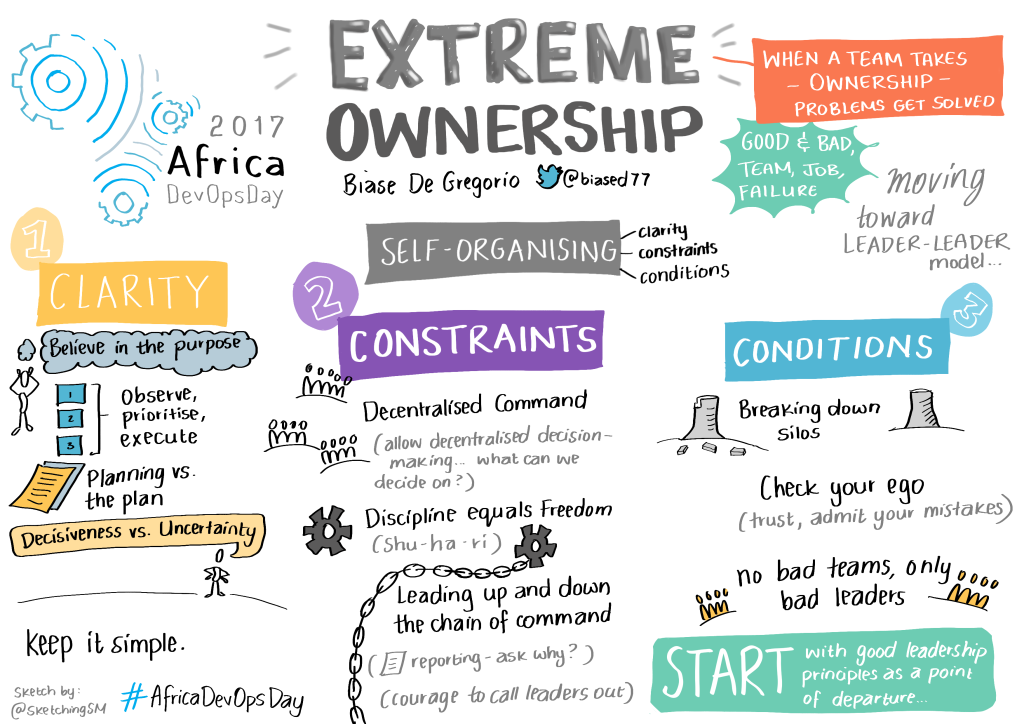 2017
Africa
DevOpsDay
EXTREME
OWNERSHIP
Biase De Gregorio @biased77
WHEN A TEAM TAKES
- OWNERSHIP -
PROBLEMS GET SOLVED
GOOD & BAD,
TEAM, JOB,
FAILURE
moving
toward
LEADER-LEADER
model...
SELF-ORGANISING
clarity
constraints
conditions
1
CLARITY
Believe in the purpose
1
2
3
Observe,
prioritise,
execute
Planning vs.
the plan
Decisiveness vs. Uncertainty
Keep it simple.
2
CONSTRAINTS
Decentralised Command
(allow decentralised decision-
making... what can we
decide on?)
Discipline equals Freedom
(Shu-ha-ri)
Leading up and down
the chain of command
(reporting - ask why?)
(courage to call leaders out)
3
CONDITIONS
Breaking down
silos
Check your ego
(trust, admit your mistakes)
no bad teams, only
bad leaders
START with good leadership
principles as a point
of departure...
Sketch by:
@SketchingSM
#AfricaDevOpsDay